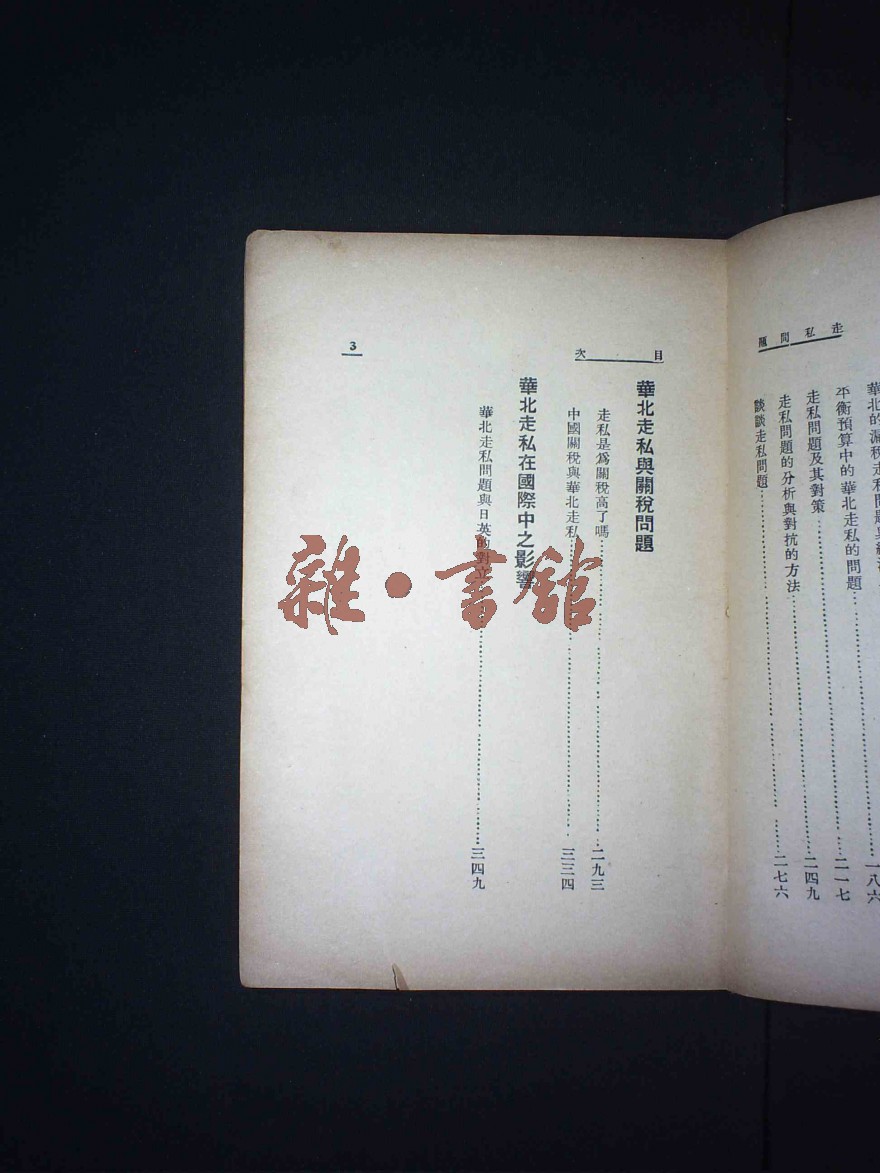 走私問題
華北的漏稅走私問題與經濟
平衡預算中的華北走私的問題……二一七
走私問題及其對策……二四九
走私問題的分析與對抗的方法
談談走私問題……二七六
一八六
目次
華北走私與關稅問題
走私是爲關稅高了嗎……二九三
中國關稅與華北走私……三三四
華北走私在國際中之影響
華北走私問題與日英的對立……三四九
3
雜·書館